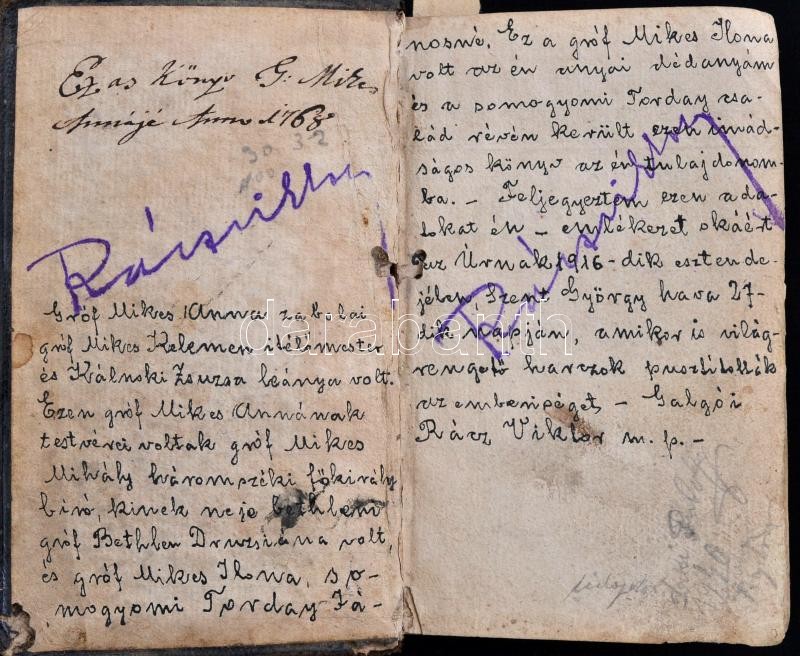 Ez as Könyv G: Mikes
Annájé Anno 1768
30 32
100
Rácz Viktor
Gróf Mikes Anna zabolai
gróf Mikes Kelemen itélőmester
és Kálnoki Zsuzsa leánya volt.
Ezen gróf Mikes Annának
testvérei voltak gróf Mikes
Mihály háromszéki főkirály
biró, kinek neje bethleni
gróf Bethlen Druzsiána volt,
és gróf Mikes Ilona, so-
mogyomi Torday Já-
nosné. Ez a gróf Mikes Ilona
volt az én anyai dédanyám
és a somogyomi Torday csa-
lád révén került ezen imád-
ságos könyv az én tulajdonom-
ba. – Feljegyeztem ezen ada-
tokat én – emlékezet okáért
az Úrnak 1916-dik esztende-
jében, Szent György hava 27-
dik napján, amikor is világ-
rengető harczok pusztitották
az emberiséget – Galgói
Rácz Viktor m. p. –
Rácz Viktor
darabanth